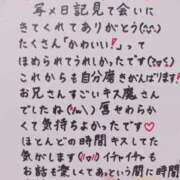 写メ日記見て会いに
きてくれてありがとう(^^)
たくさん「かわいい!」って
ほめられてうれしかったです(^^)
これからも自分磨きがんばります!
お兄さんすごいキス魔さん
でしたね(^^) 唇やわらか
くて気持ちよかったです♡
ほとんどの時間キスしてた
気がします(^^) イチャイチャも
お話も楽しくてあっという間に時間